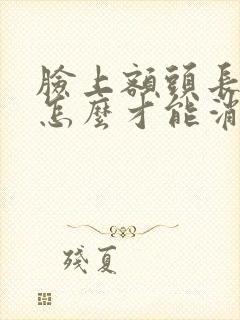 臉上額頭長
怎麼才能消
殘夏